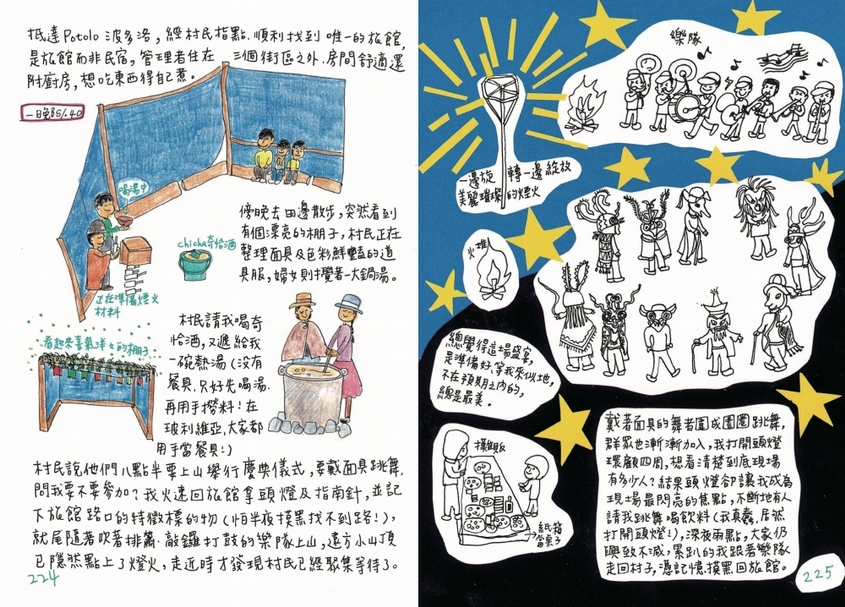 抵達Potolo波多洛,經村民指點.順利找到唯一的旅館,
是旅館而非民宿,管理者住在 三個街區之外.房間舒適還
附廚房,想吃東西得自己煮。
一晚BS/.40
喝湯中
chicha奇恰酒
正在準備煙火
材料
傍晚去田邊散步,突然看到
有個漂亮的棚子,村民正在
整理面具及色彩鮮豔的道
具服,婦女則攪著一大鍋湯。
看起來喜氣洋々的棚子
村民請我喝奇
恰酒,又遞給我
一碗熱湯(沒有
餐具.只好先喝湯.
再用手撈料!在
玻利維亞,大家都
用手當餐具!)
村民說他們八點半要上山舉行慶典儀式,要戴面具跳舞.
問我要不要參加?我火速回旅館拿頭燈及指南針,並記
下旅館路口的特徵標的物(怕半夜摸黑找不到路!),
就尾隨著吹著排簫.敲鑼打鼓的樂隊上山,遠方小山頂
已隱然點上了燈火,走近時才發現村民已經聚集等待了。
224
樂隊
一邊旋轉一邊綻放
美麗璀璨的煙火
火堆
總覺得這場盛宴,
是準備好.等我來似地,
不在預期之內的,
總是最美。
擺攤販
紙箱
當桌子
戴著面具的舞者圍成團團跳舞,
群眾也漸漸加入,我打開頭燈
環顧四周,想看清楚到底現場
有多少人?結果頭燈卻讓我成為
現場最閃亮的焦點,不斷地有人
請我跳舞喝飲料(我真蠢,居然
打開頭燈!),深夜兩點,大家仍
興致不減,累趴的我跟著樂隊
走回村子,憑記憶摸黑回旅館。
225